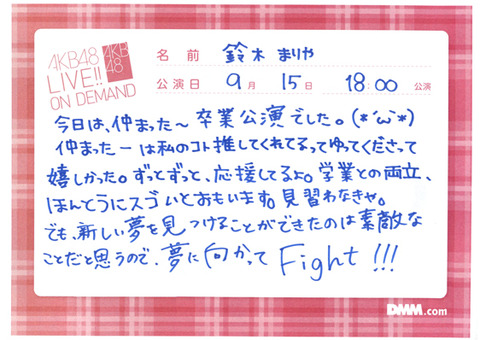 AKB48
LIVE!!
ON DEMAND
AKB
48
名前 鈴木 まりや
公演日 9月 15日 18:00 公演
今日は、仲まった〜 卒業公演でした。(*´ω`*)
仲まったーは私のコト推してくれてるってゆってくださって
嬉しかった。ずっとずっと、応援してるよ。学業との両立、
ほんとうにスゴいとおもいます。見習わなきゃ。
でも、新しい夢を見つけることができたのは素敵な
ことだと思うので、夢に向かって Fight!!!
DMM.com